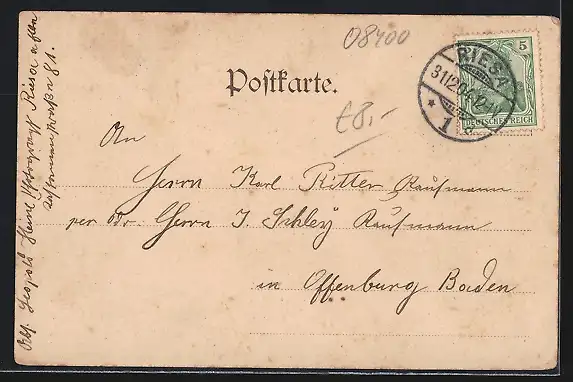 08400
Postkarte.
€8,-
RIESA
31.12.04.12-1
* 1 d
5
DEUTSCHES REICH
An
Herrn Karl Ritter Kaufmann
per Adr. Herrn I. Schley Kaufmann
in Offenburg Baden
Abs. Leopold Heine Riesa a/Elbe